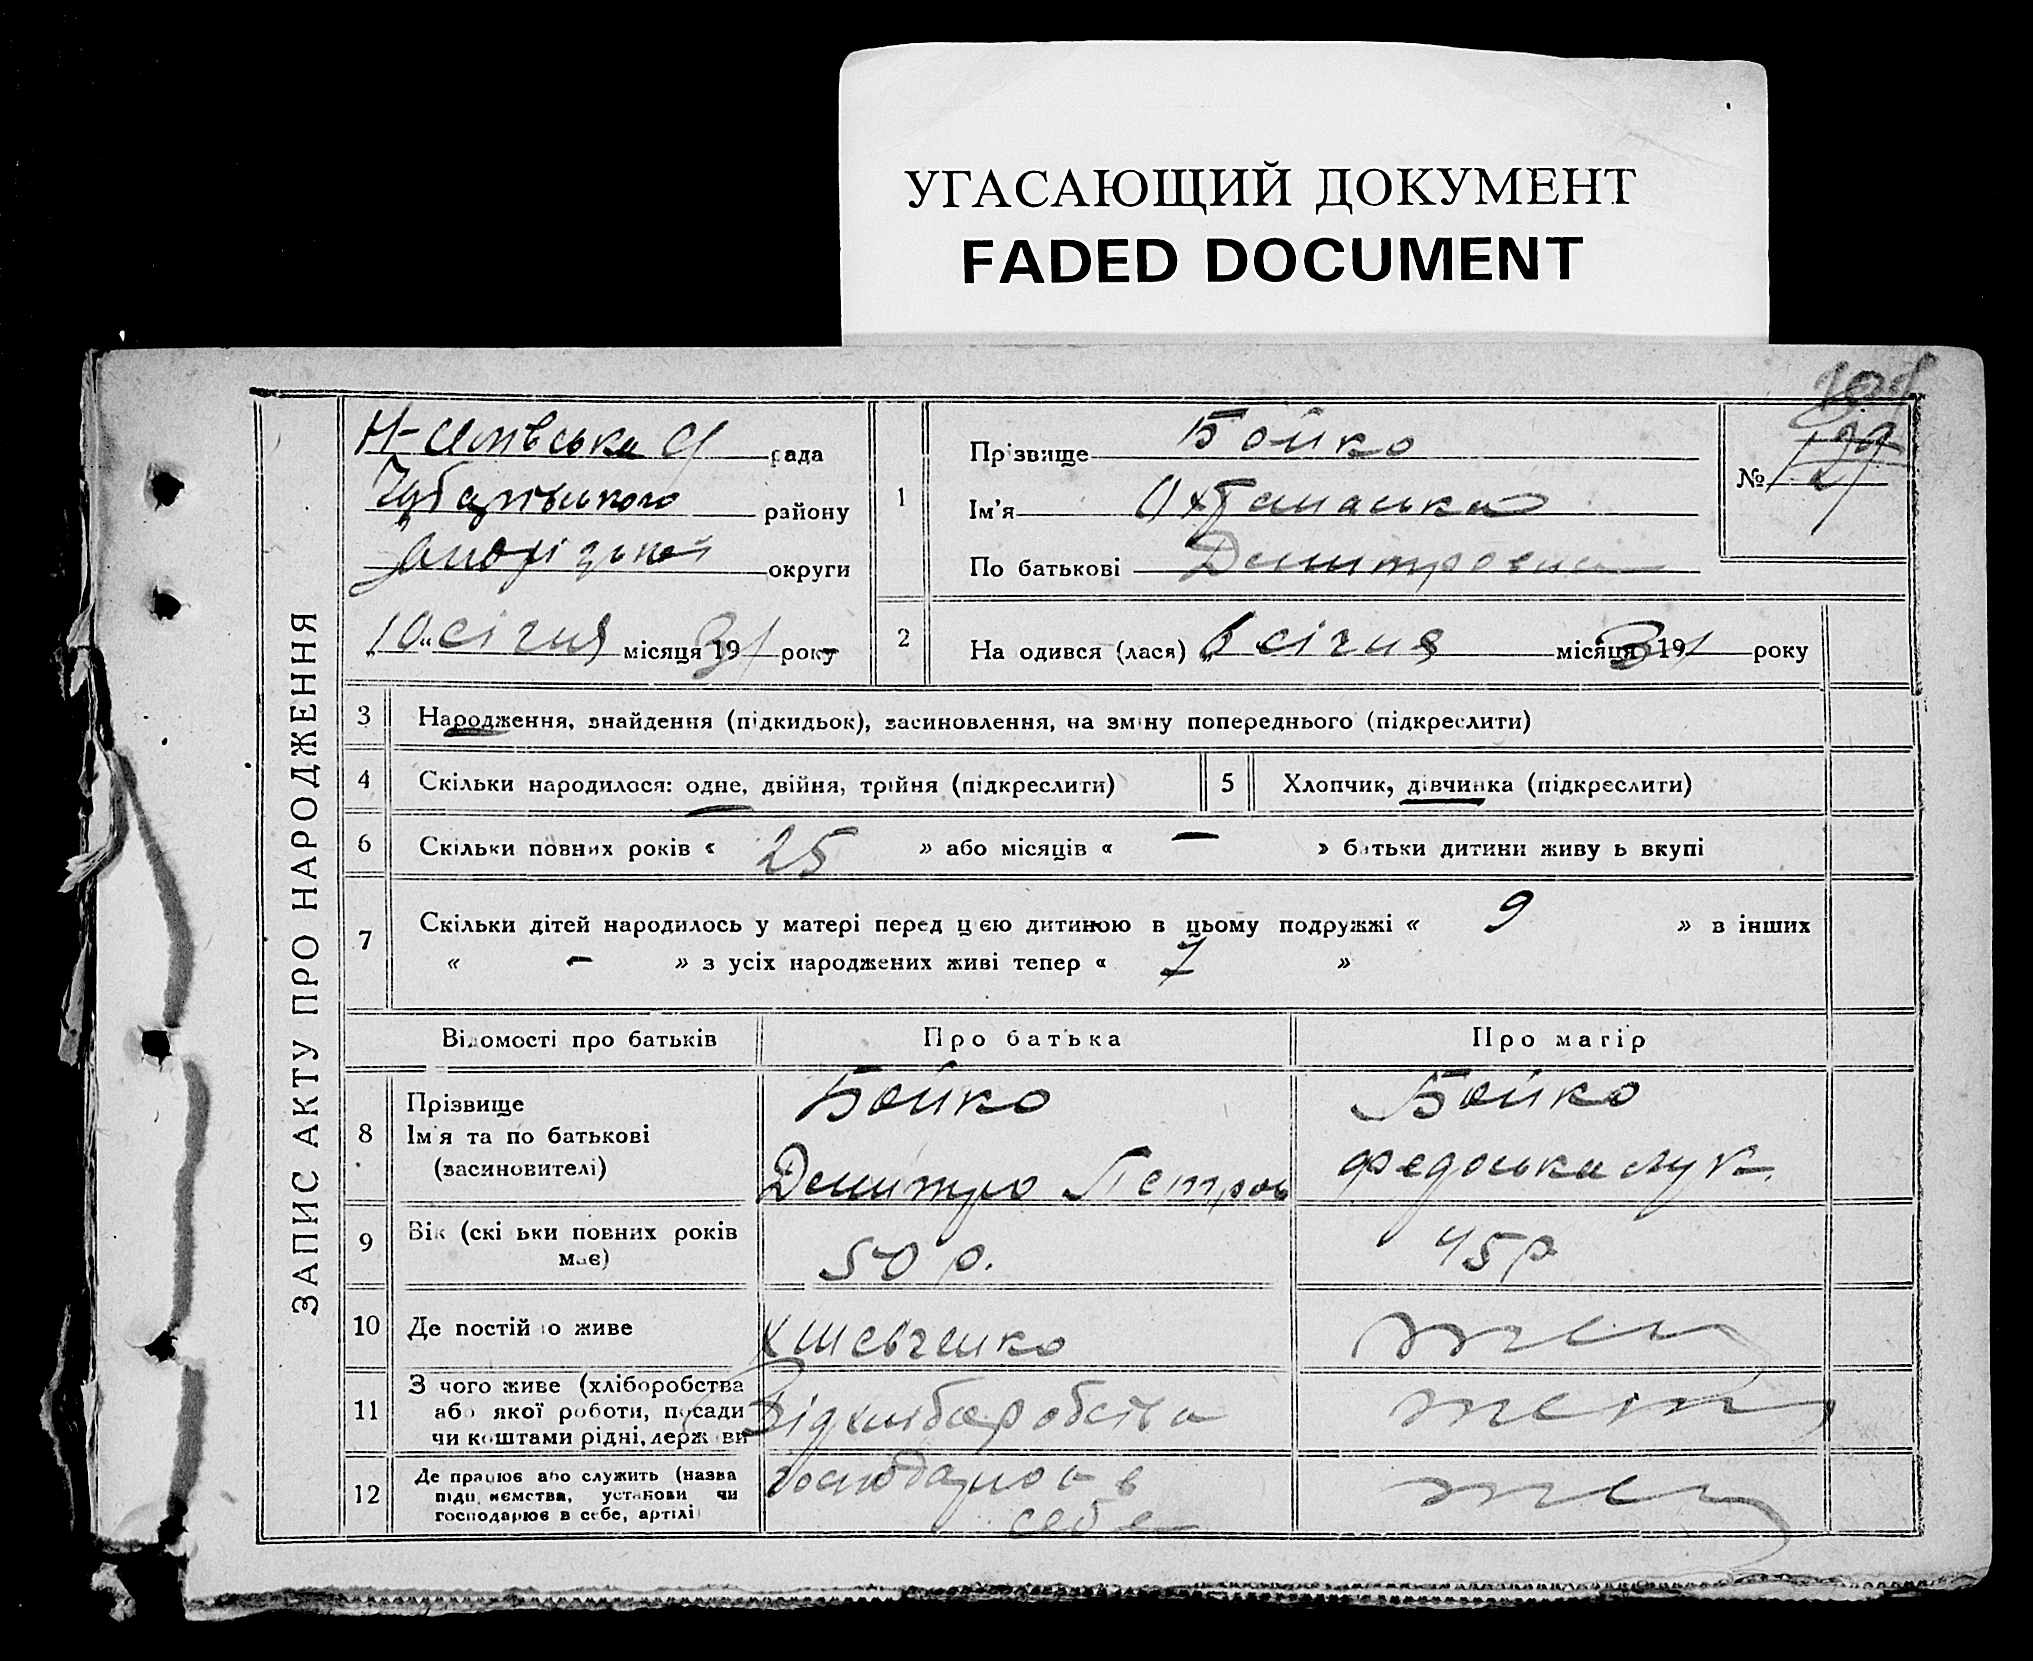 УГАСАЮЩИЙ ДОКУМЕНТ
FADED DOCUMENT
ЗАПИС АКТУ ПРО НАРОДЖЕННЯ
рада
Чубарівського району
округи
„10“ січня місяця 1931 року
1
Прізвище Бойко
Ім'я
По батькові Демитровна
№ 29
2
Народився (лася) „6 січня місяця 1931 року
3 Народження, знайдення (підкидьок), засиновлення, на зміну попереднього (підкреслити)
4 Скільки народилося: одне, двійня, трійня (підкреслити) 5 Хлопчик, дівчинка (підкреслити)
6 Скільки повних років « 25 » або місяців « — » батьки дитини живуть вкупі
7 Скільки дітей народилось у матері перед цією дитиною в цьому подружжі « 9 » в інших
« — » з усіх народжених живі тепер « 7 »
Відомості про батьків Про батька Про матір
8 Прізвище Бойко Бойко
Ім'я та по батькові
(засиновителі) Демитро Петров Федоська Лук.
9 Вік (скільки повних років має) 50 р. 45 р
10 Де постійно живе х Шевченко теж
11 З чого живе (хліборобства
або якої роботи, посади
чи коштами рідні, держави Від хліборобства теж
12 Де працює або служить (назва
підприємства, установи чи
господарює в себе, артілі) господарює в себе теж